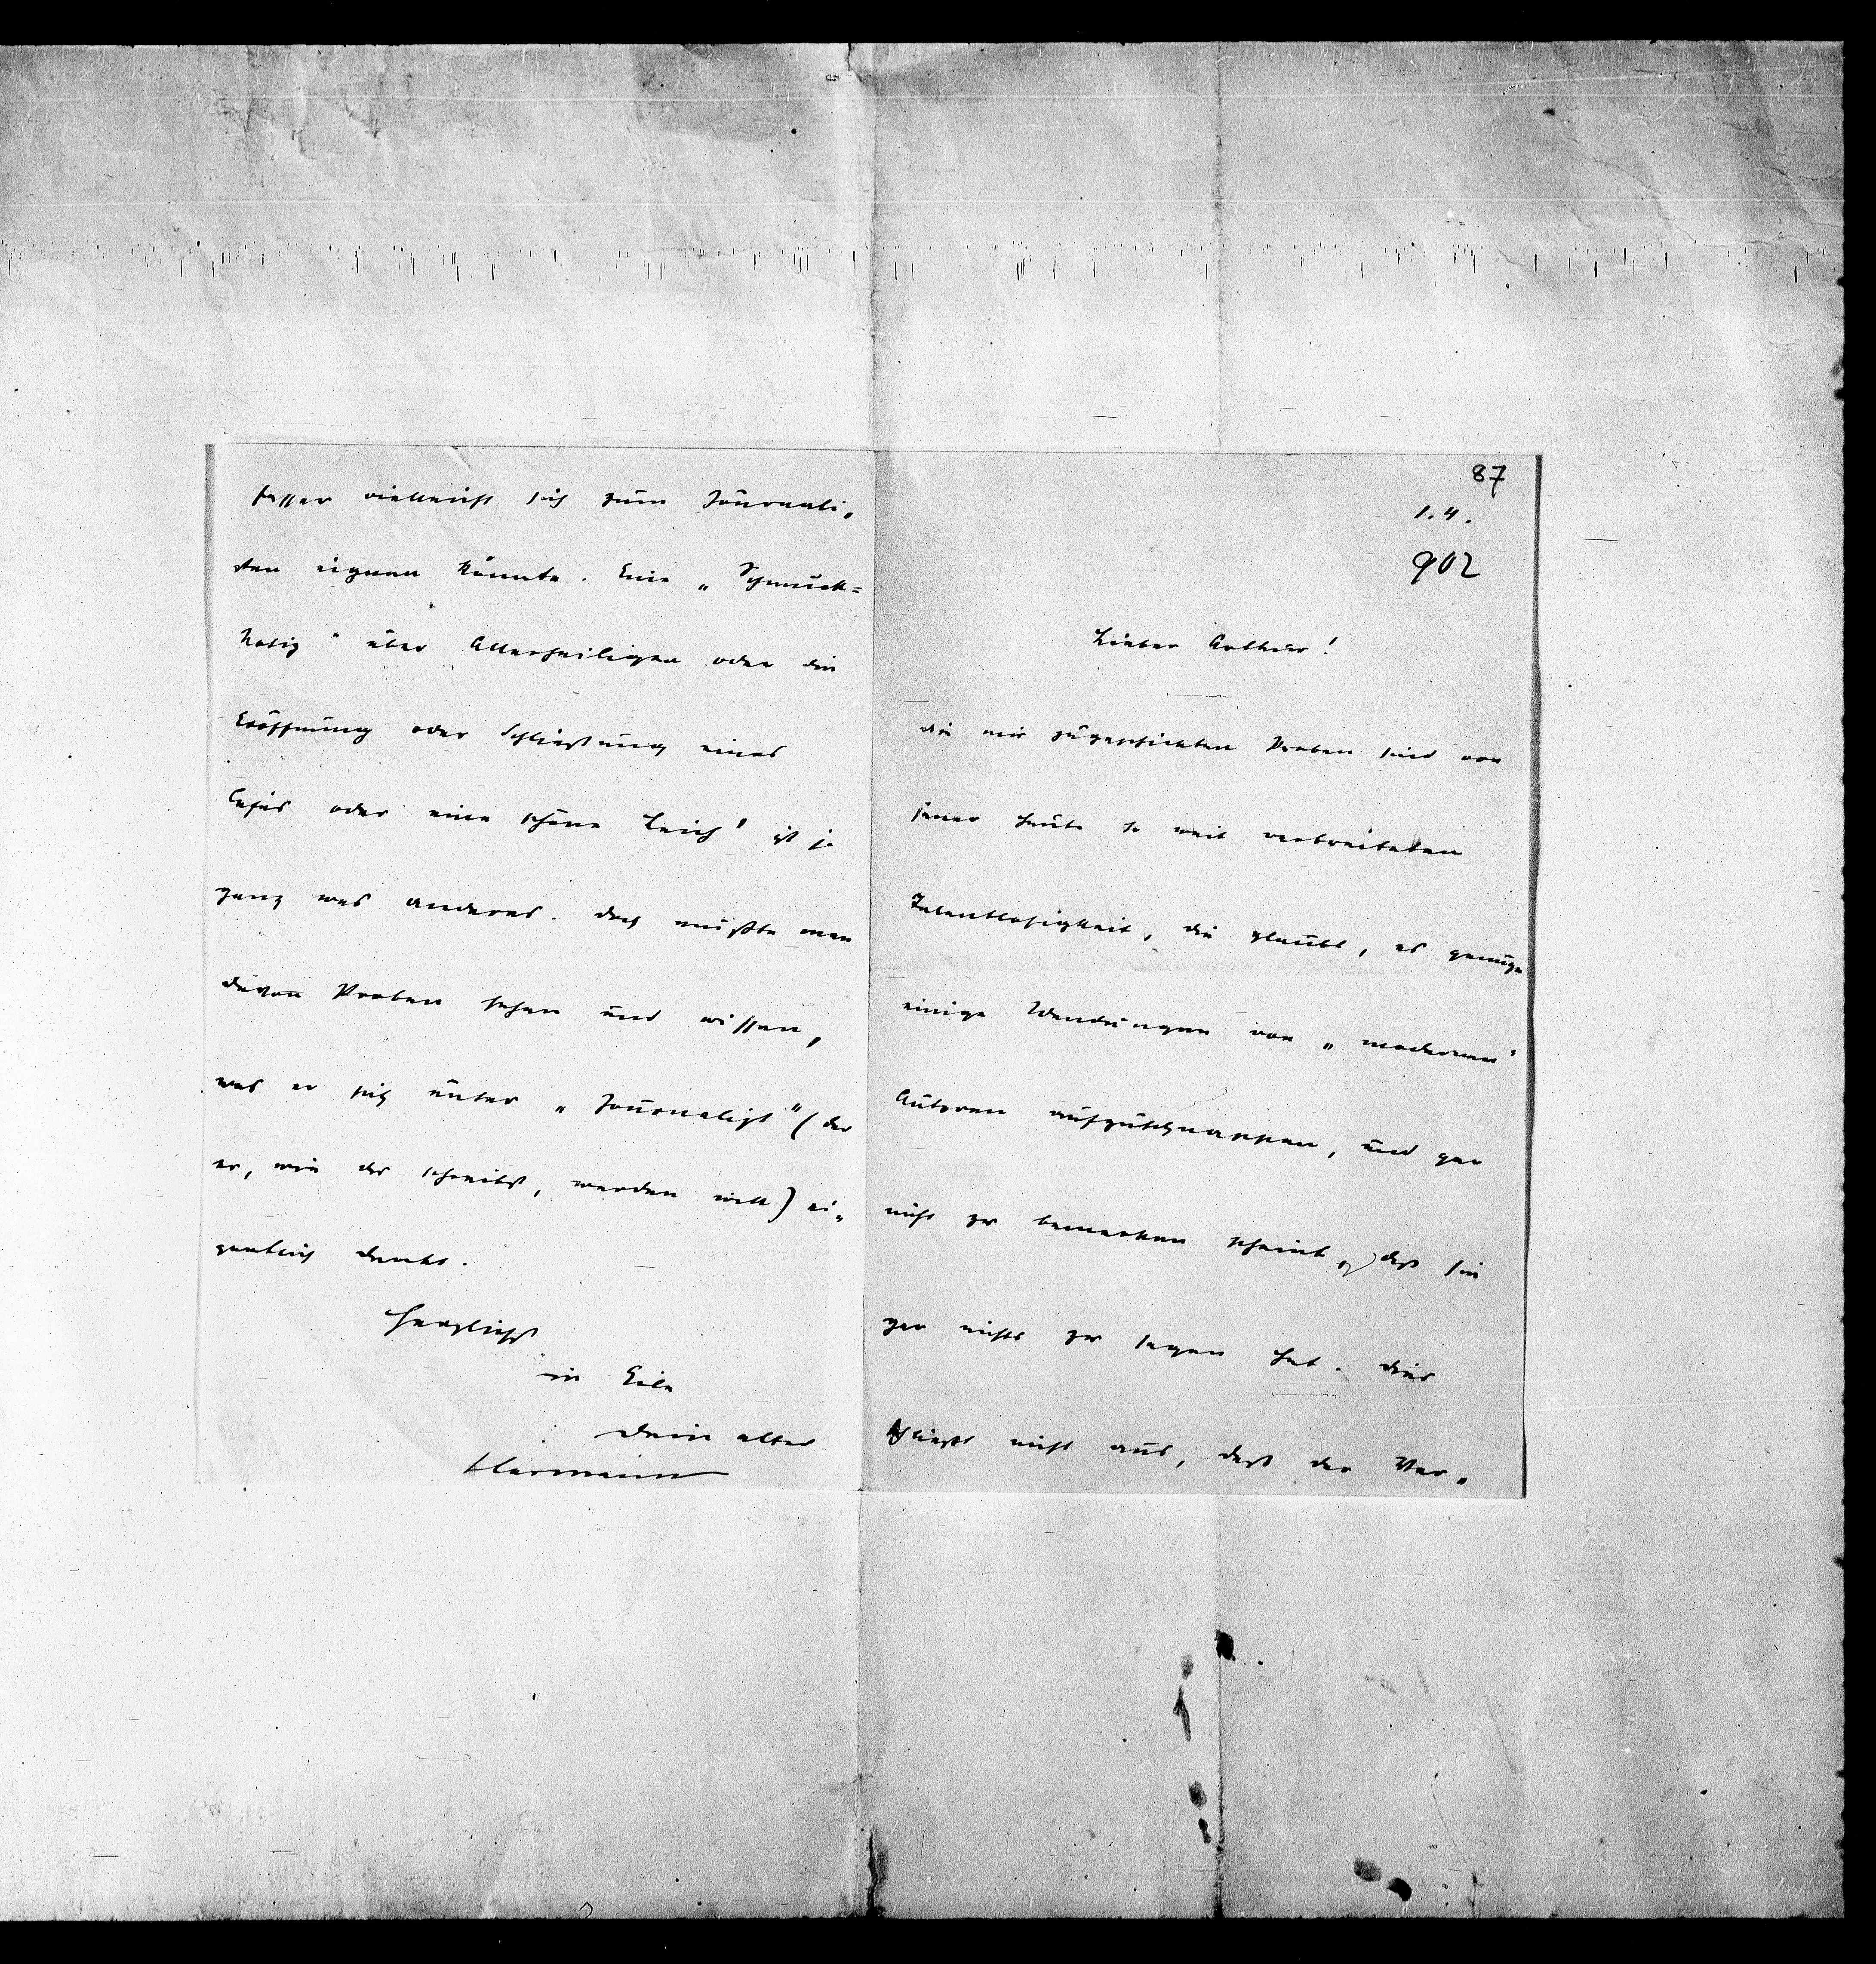 87
1. 4.
902
Lieber Arthur!
die mir zugeschickten Proben sind von
jener heute so weit verbreiteten
Talentlosigkeit, die glaubt, es genüge
einige Wendungen von „modernen“
Autoren aufzuschnappen, und gar
nicht zu bemerken scheint, daß sie
gar nichts zu sagen hat. Dies
schließt nicht aus, daß der Ver„
fasser vielleicht sich zum Journali„
sten eignen könnte. Eine „Schmuck=
Notiz“ über Allerheiligen oder die
Eröffnung oder Schließung eines
Cafés oder eine schöne Leich' ist ja
ganz was anderes. Doch müßte man
davon Proben sehen und wissen,
was er sich unter „Journalist“ (der
er, wie du schreibst, werden will) ei„
gentlich denkt.
Herzlichst
in Eile
dein alter
Hermann